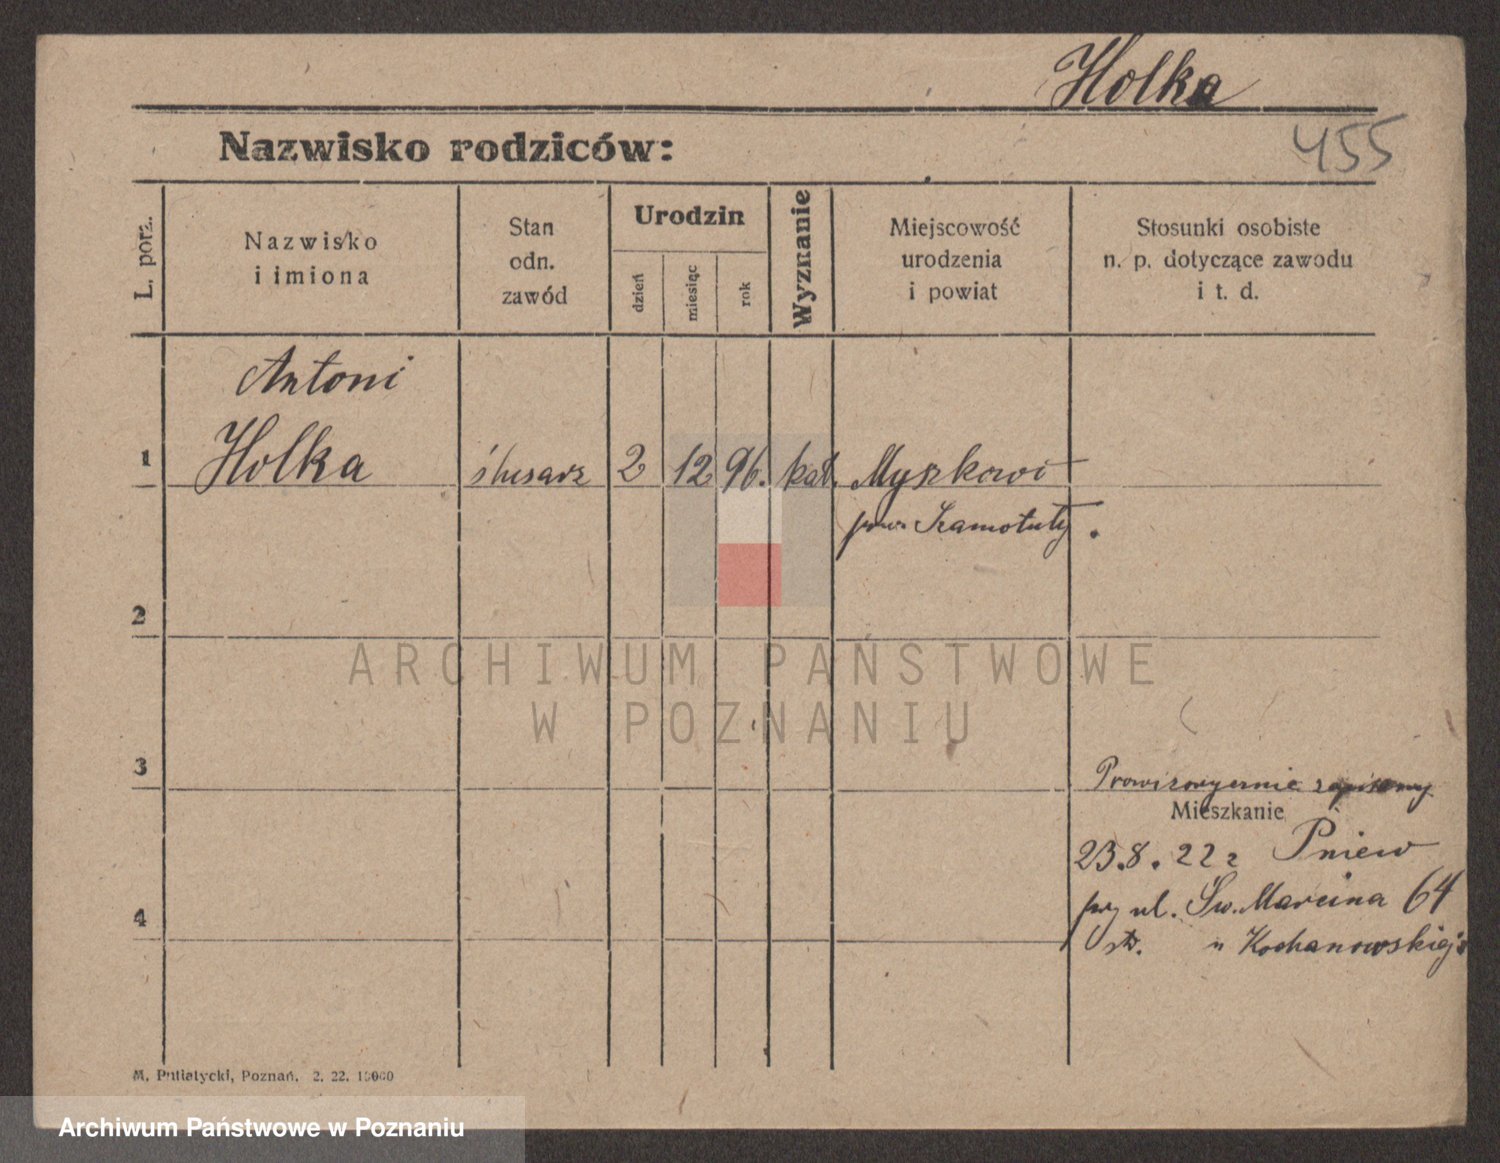 Holka
Nazwisko rodziców:
455
L. porz.
Nazwisko
i imiona
Stan
odn.
zawód
Urodzin
dzień
miesiąc
rok
Wyznanie
Miejscowość
urodzenia
i powiat
Stosunki osobiste
n. p. dotyczące zawodu
i t. d.
Antoni
1 Holka ślusarz 2 12 96. kat. Myszkowi
pow. Szamotuły.
2
ARCHIWUM PAŃSTWOWE
W POZNANIU
3
Prowizorycznie zapisany
Mieszkanie
23.8.22 r Pniew
przy ul. Św. Marcina 64
4
u Kochanowskiej
M. Putiatycki, Poznań. 2. 22. 10000
Archiwum Państwowe w Poznaniu